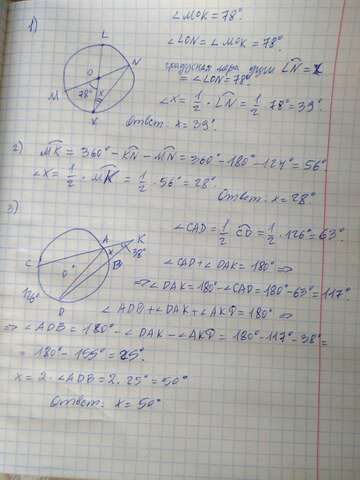 1)
∠MOK = 78°
∠LON = ∠MOK = 78°.
градусная мера дуги L͡N = x
= ∠LON = 78°.
∠x = 1/2 · L͡N = 1/2 · 78° = 39°.
Ответ: x = 39°.
L
N
O
78°
x
M
K
2) M͡K = 360° - K͡N - M͡N = 360° - 180° - 124° = 56°
∠x = 1/2 · M͡K = 1/2 · 56° = 28°.
Ответ: x = 28°
3)
∠CAD = 1/2 C͡D = 1/2 · 126° = 63°
∠CAD + ∠DAK = 180° ⇒
⇒ ∠DAK = 180° - ∠CAD = 180° - 63° = 117°
∠ADB + ∠DAK + ∠AKD = 180° ⇒
A
K
x
38°
C
O
B
126°
D
⇒ ∠ADB = 180° - ∠DAK - ∠AKD = 180° - 117° - 38° =
= 180° - 155° = 25°.
x = 2 · ∠ADB = 2 · 25° = 50°
Ответ: x = 50°